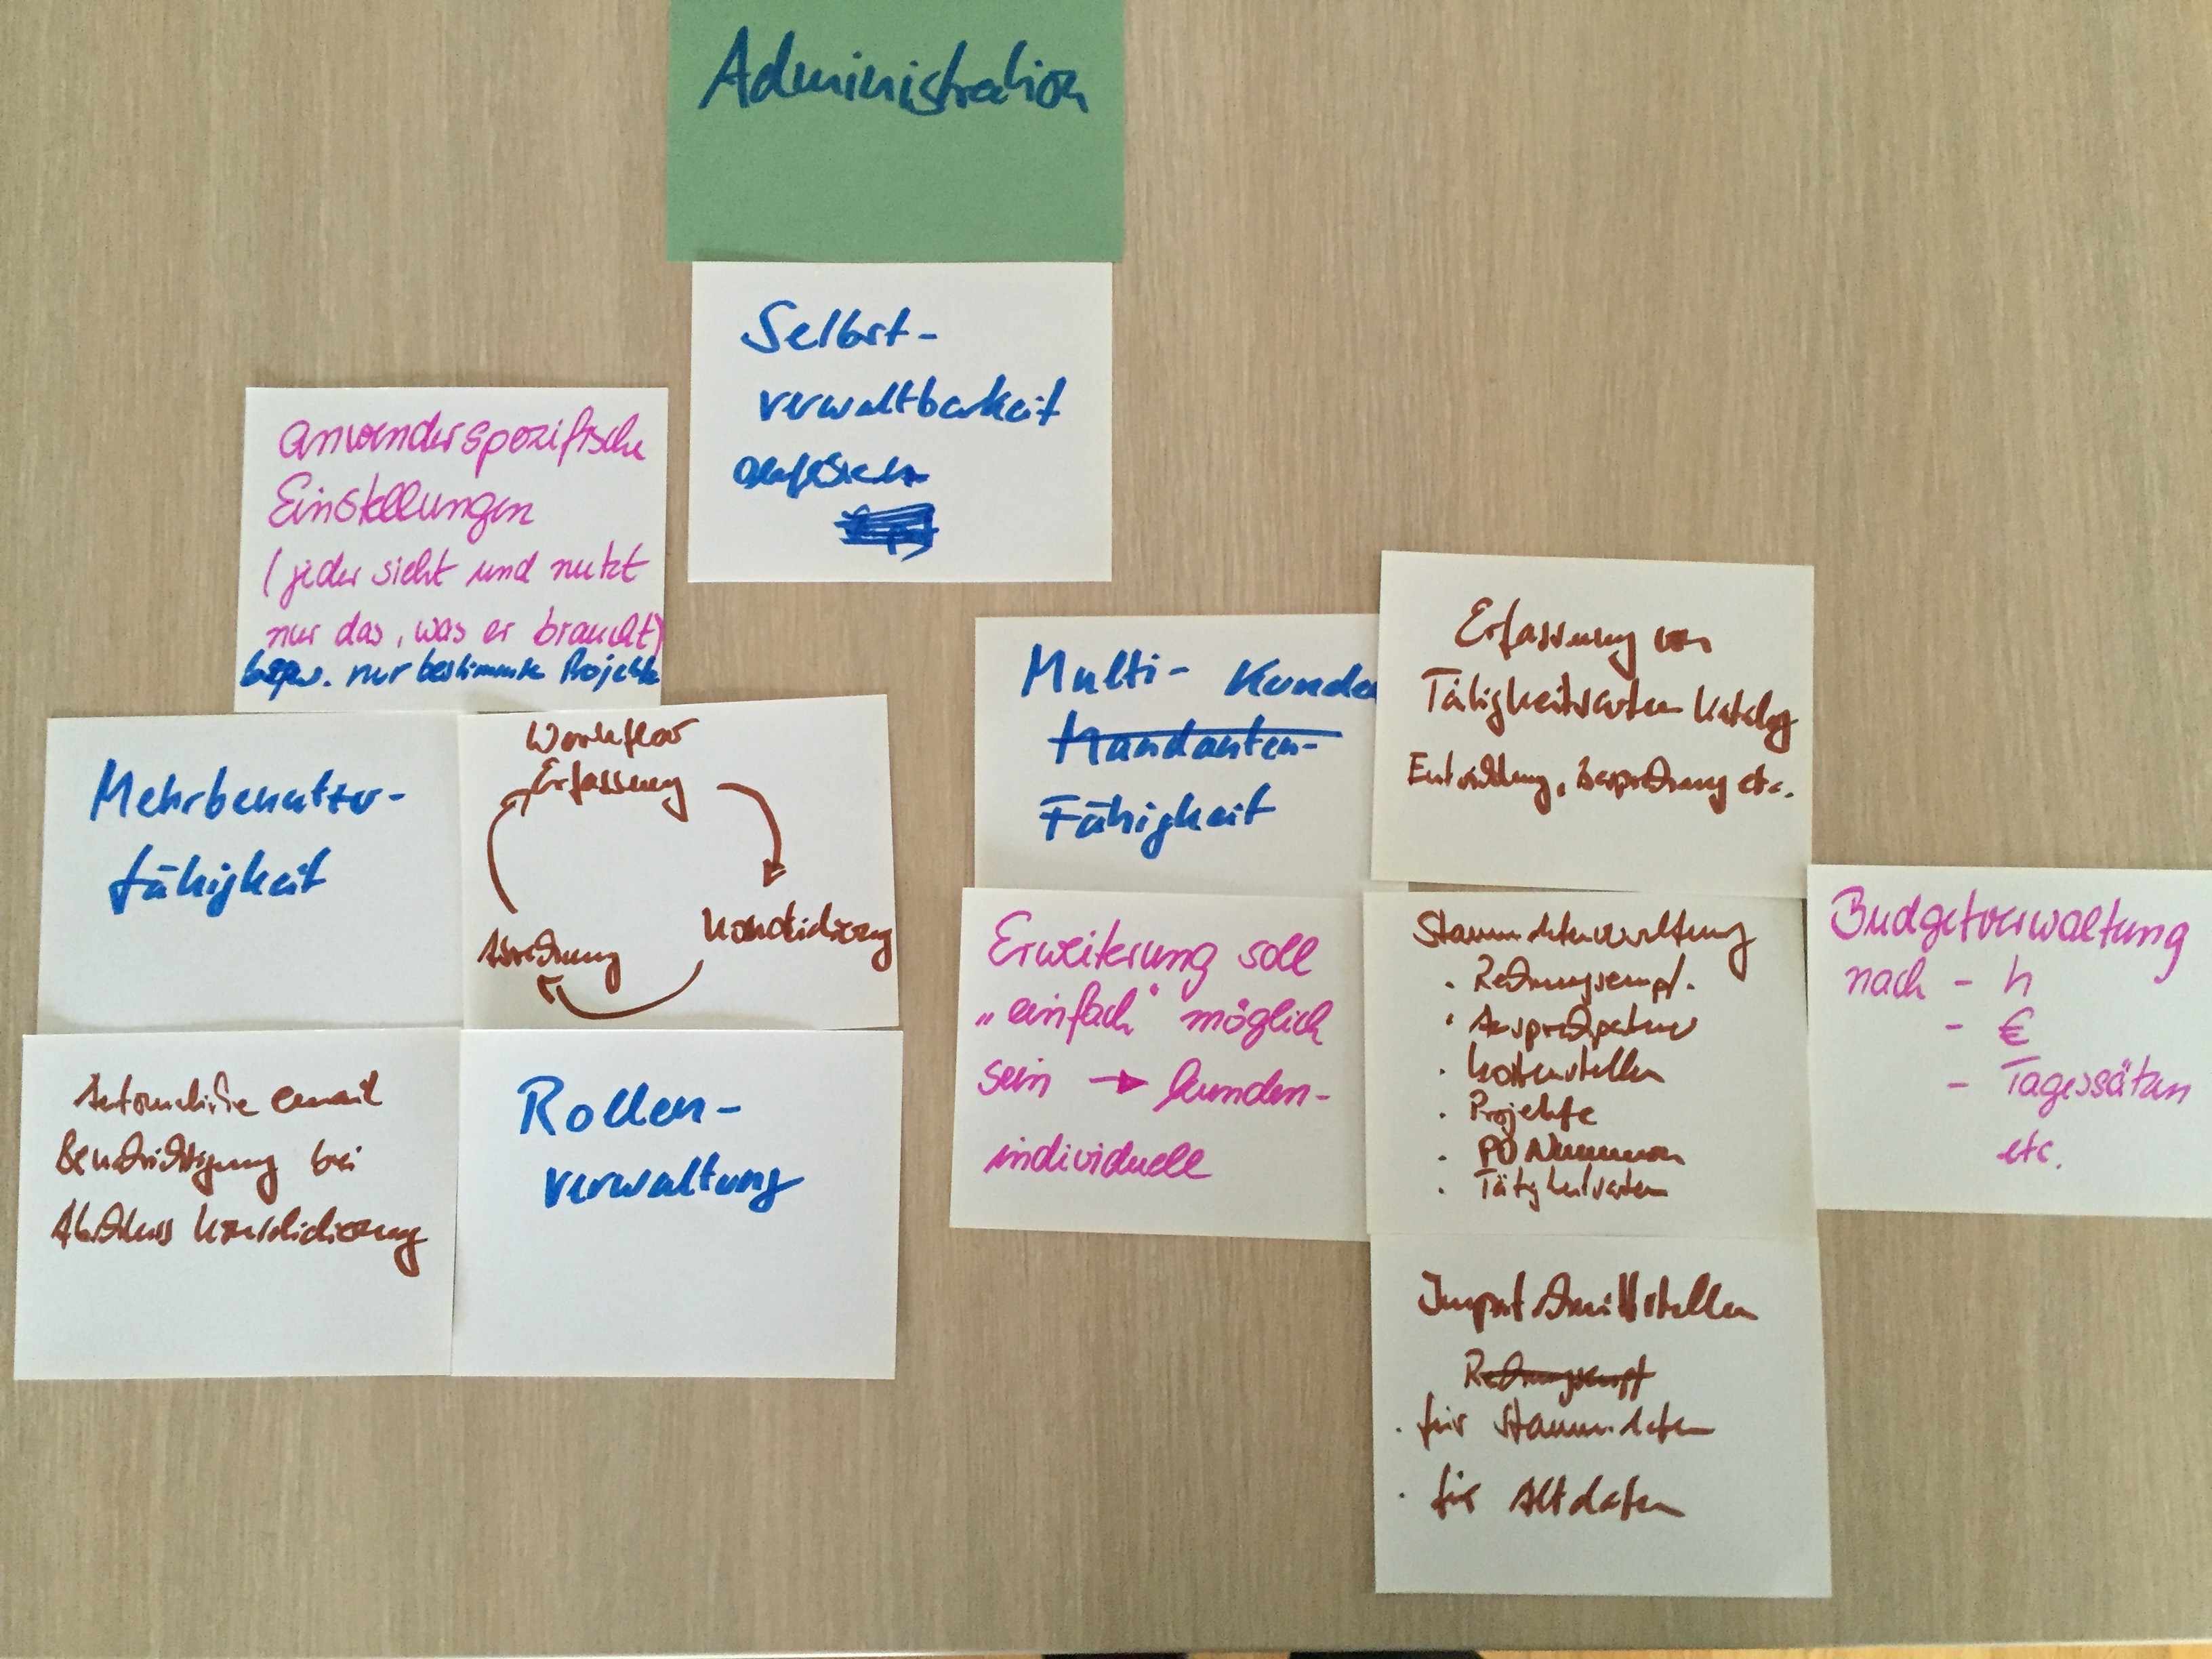 Administration
Selbst-
verwaltbarkeit
anwenderspezifische
Einstellungen
(jeder sieht und nutzt
nur das, was er braucht)
bzw. nur bestimmte Projekte
Mehrbenutzer-
fähigkeit
Workflow
Erfassung
Konsolidierung
Abrechnung
Automatische email
Benachrichtigung bei
Abschluss Konsolidierung
Rollen-
verwaltung
Multi- Kunden
Mandanten-
Fähigkeit
Erweiterung soll
„einfach" möglich
sein → kunden-
individuelle
Erfassung von
Tätigkeitsarten Katalog
Entwicklung, Besprechung etc.
Stammdatenverwaltung
· Rechnungsempf.
· Ansprechpartner
· Kostenstellen
· Projekte
· PO Nummern
· Tätigkeitsarten
Budgetverwaltung
nach - h
- €
- Tagessätzen
etc.
Import Schnittstellen
Rechnungsempf
· für Stammdaten
· für Altdaten